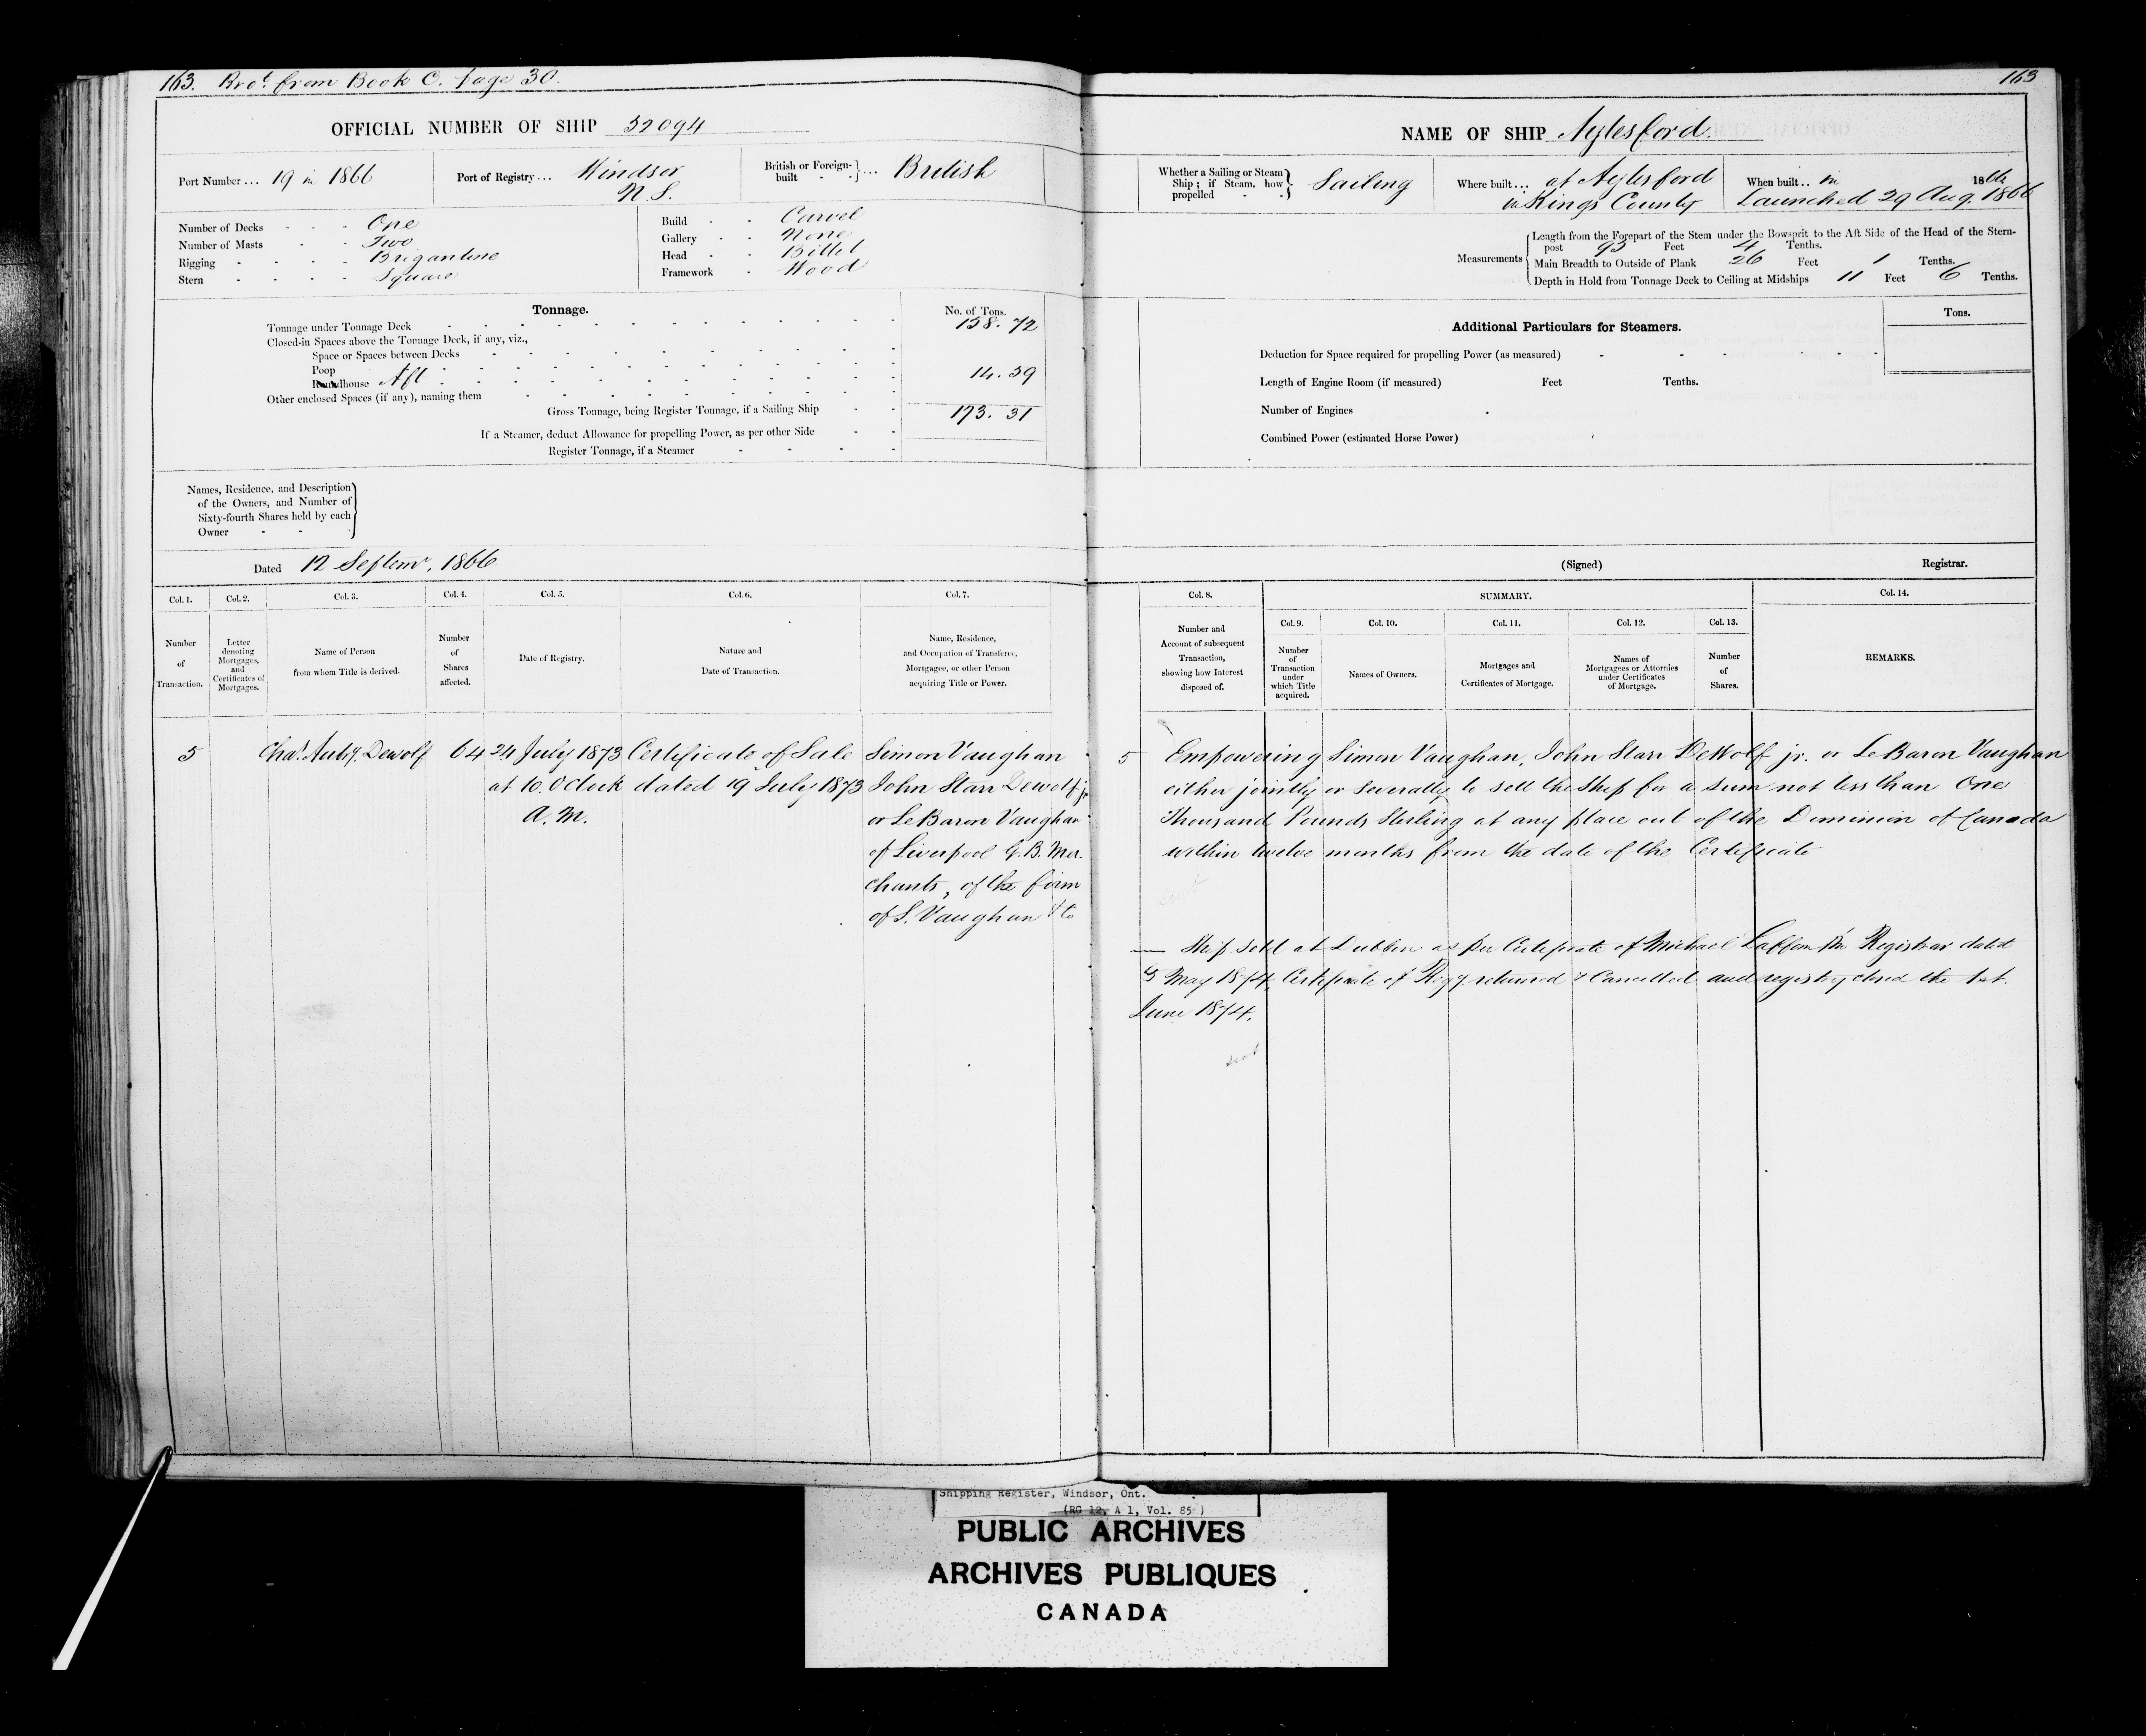 163. Bro.t from Book C. page 30.
163
OFFICIAL NUMBER OF SHIP 52094
NAME OF SHIP Aylesford.
Port Number... 19 in 1866
Port of Registry... Windsor
N.S.
British or Foreign-built - -}... British
Whether a Sailing or Steam Ship; if Steam, how propelled - -} Sailing
Where built... at Aylesford
in Kings County
When built.. in 1866
Launched 29 Aug. 1866
Number of Decks - - - One
Number of Masts - - Two
Rigging - - - - Brigantine
Stern - - - - Square
Build - - Carvel
Gallery - - None
Head - - Billet
Framework - Wood
Measurements
Length from the Forepart of the Stem under the Bowsprit to the Aft Side of the Head of the Stern-
post 93 Feet 4 Tenths.
Main Breadth to Outside of Plank 26 Feet 1 Tenths.
Depth in Hold from Tonnage Deck to Ceiling at Midships 11 Feet 6 Tenths.
Tonnage.
No. of Tons.
Tonnage under Tonnage Deck 158.72
Closed-in Spaces above the Tonnage Deck, if any, viz.,
Space or Spaces between Decks
Poop
Roundhouse Aft 14.59
Other enclosed Spaces (if any), naming them
Gross Tonnage, being Register Tonnage, if a Sailing Ship 173.31
If a Steamer, deduct Allowance for propelling Power, as per other Side
Register Tonnage, if a Steamer
Additional Particulars for Steamers.
Tons.
Deduction for Space required for propelling Power (as measured)
Length of Engine Room (if measured) Feet Tenths.
Number of Engines
Combined Power (estimated Horse Power)
Names, Residence, and Description
of the Owners, and Number of
Sixty-fourth Shares held by each
Owner
Dated 12 Septemr. 1866
(Signed) Registrar.
Col. 1.
Number
of
Transaction.
Col. 2.
Letter
denoting
Mortgages,
and
Certificates of
Mortgages.
Col. 3.
Name of Person
from whom Title is derived.
Col. 4.
Number
of
Shares
affected.
Col. 5.
Date of Registry.
Col. 6.
Nature and
Date of Transaction.
Col. 7.
Name, Residence,
and Occupation of Transferee,
Mortgagee, or other Person
acquiring Title or Power.
Col. 8.
Number and
Account of subsequent
Transaction,
showing how Interest
disposed of.
SUMMARY.
Col. 9.
Number
of
Transaction
under
which Title
acquired.
Col. 10.
Names of Owners.
Col. 11.
Mortgages and
Certificates of Mortgage.
Col. 12.
Names of
Mortgagees or Attornies
under Certificates
of Mortgage.
Col. 13.
Number
of
Shares.
Col. 14.
REMARKS.
5
Chas. Dewolf
64
24 July 1873
at 10. O'clock
A.M.
Certificate of Sale
dated 19 July 1873
Simon Vaughan
John Starr Dewolf jr
or LeBaron Vaughan
of Liverpool G.B. Mer-
chants, of the firm
of S. Vaughan & Co
5 Empowering Simon Vaughan, John Starr DeWolf jr. or LeBaron Vaughan
either jointly or severally to sell the Ship for a sum not less than One
Thousand Pounds Sterling at any place out of the Dominion of Canada
within twelve months from the date of the Certificate
Ship sold at Dublin as per Certificate of Michael Registrar dated
5 May 1874, Certificate of Regy. returned & Cancelled and registry closed the 1st.
June 1874.
Shipping Register, Windsor, Ont.
(RG 12, A 1, Vol. 85 )
PUBLIC ARCHIVES
ARCHIVES PUBLIQUES
CANADA